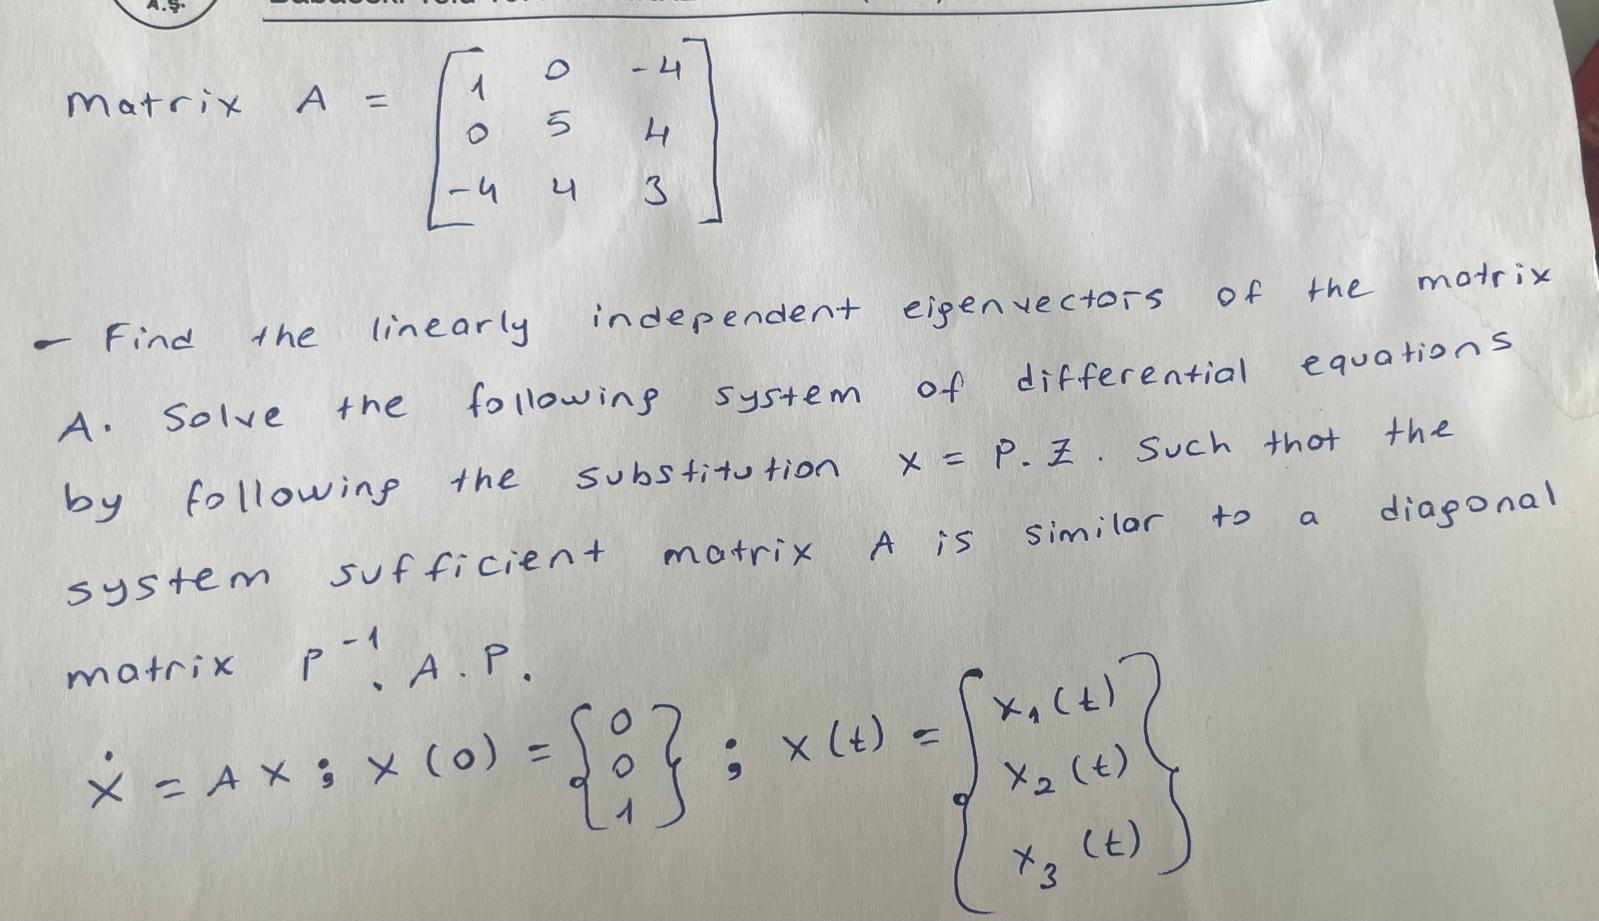 A.Ş.
matrix A = [ 1 0 -4
0 5 4
-4 4 3 ]
- Find the linearly independent eigenvectors of the matrix
A. Solve the following system of differential equations
by following the substitution x = P.Z. Such that the
system sufficient matrix A is similar to a diagonal
matrix P⁻¹.A.P.
ẋ = Ax; x(0) = { 0 0 1 } ; x(t) = { x₁(t) x₂(t) x₃(t) }